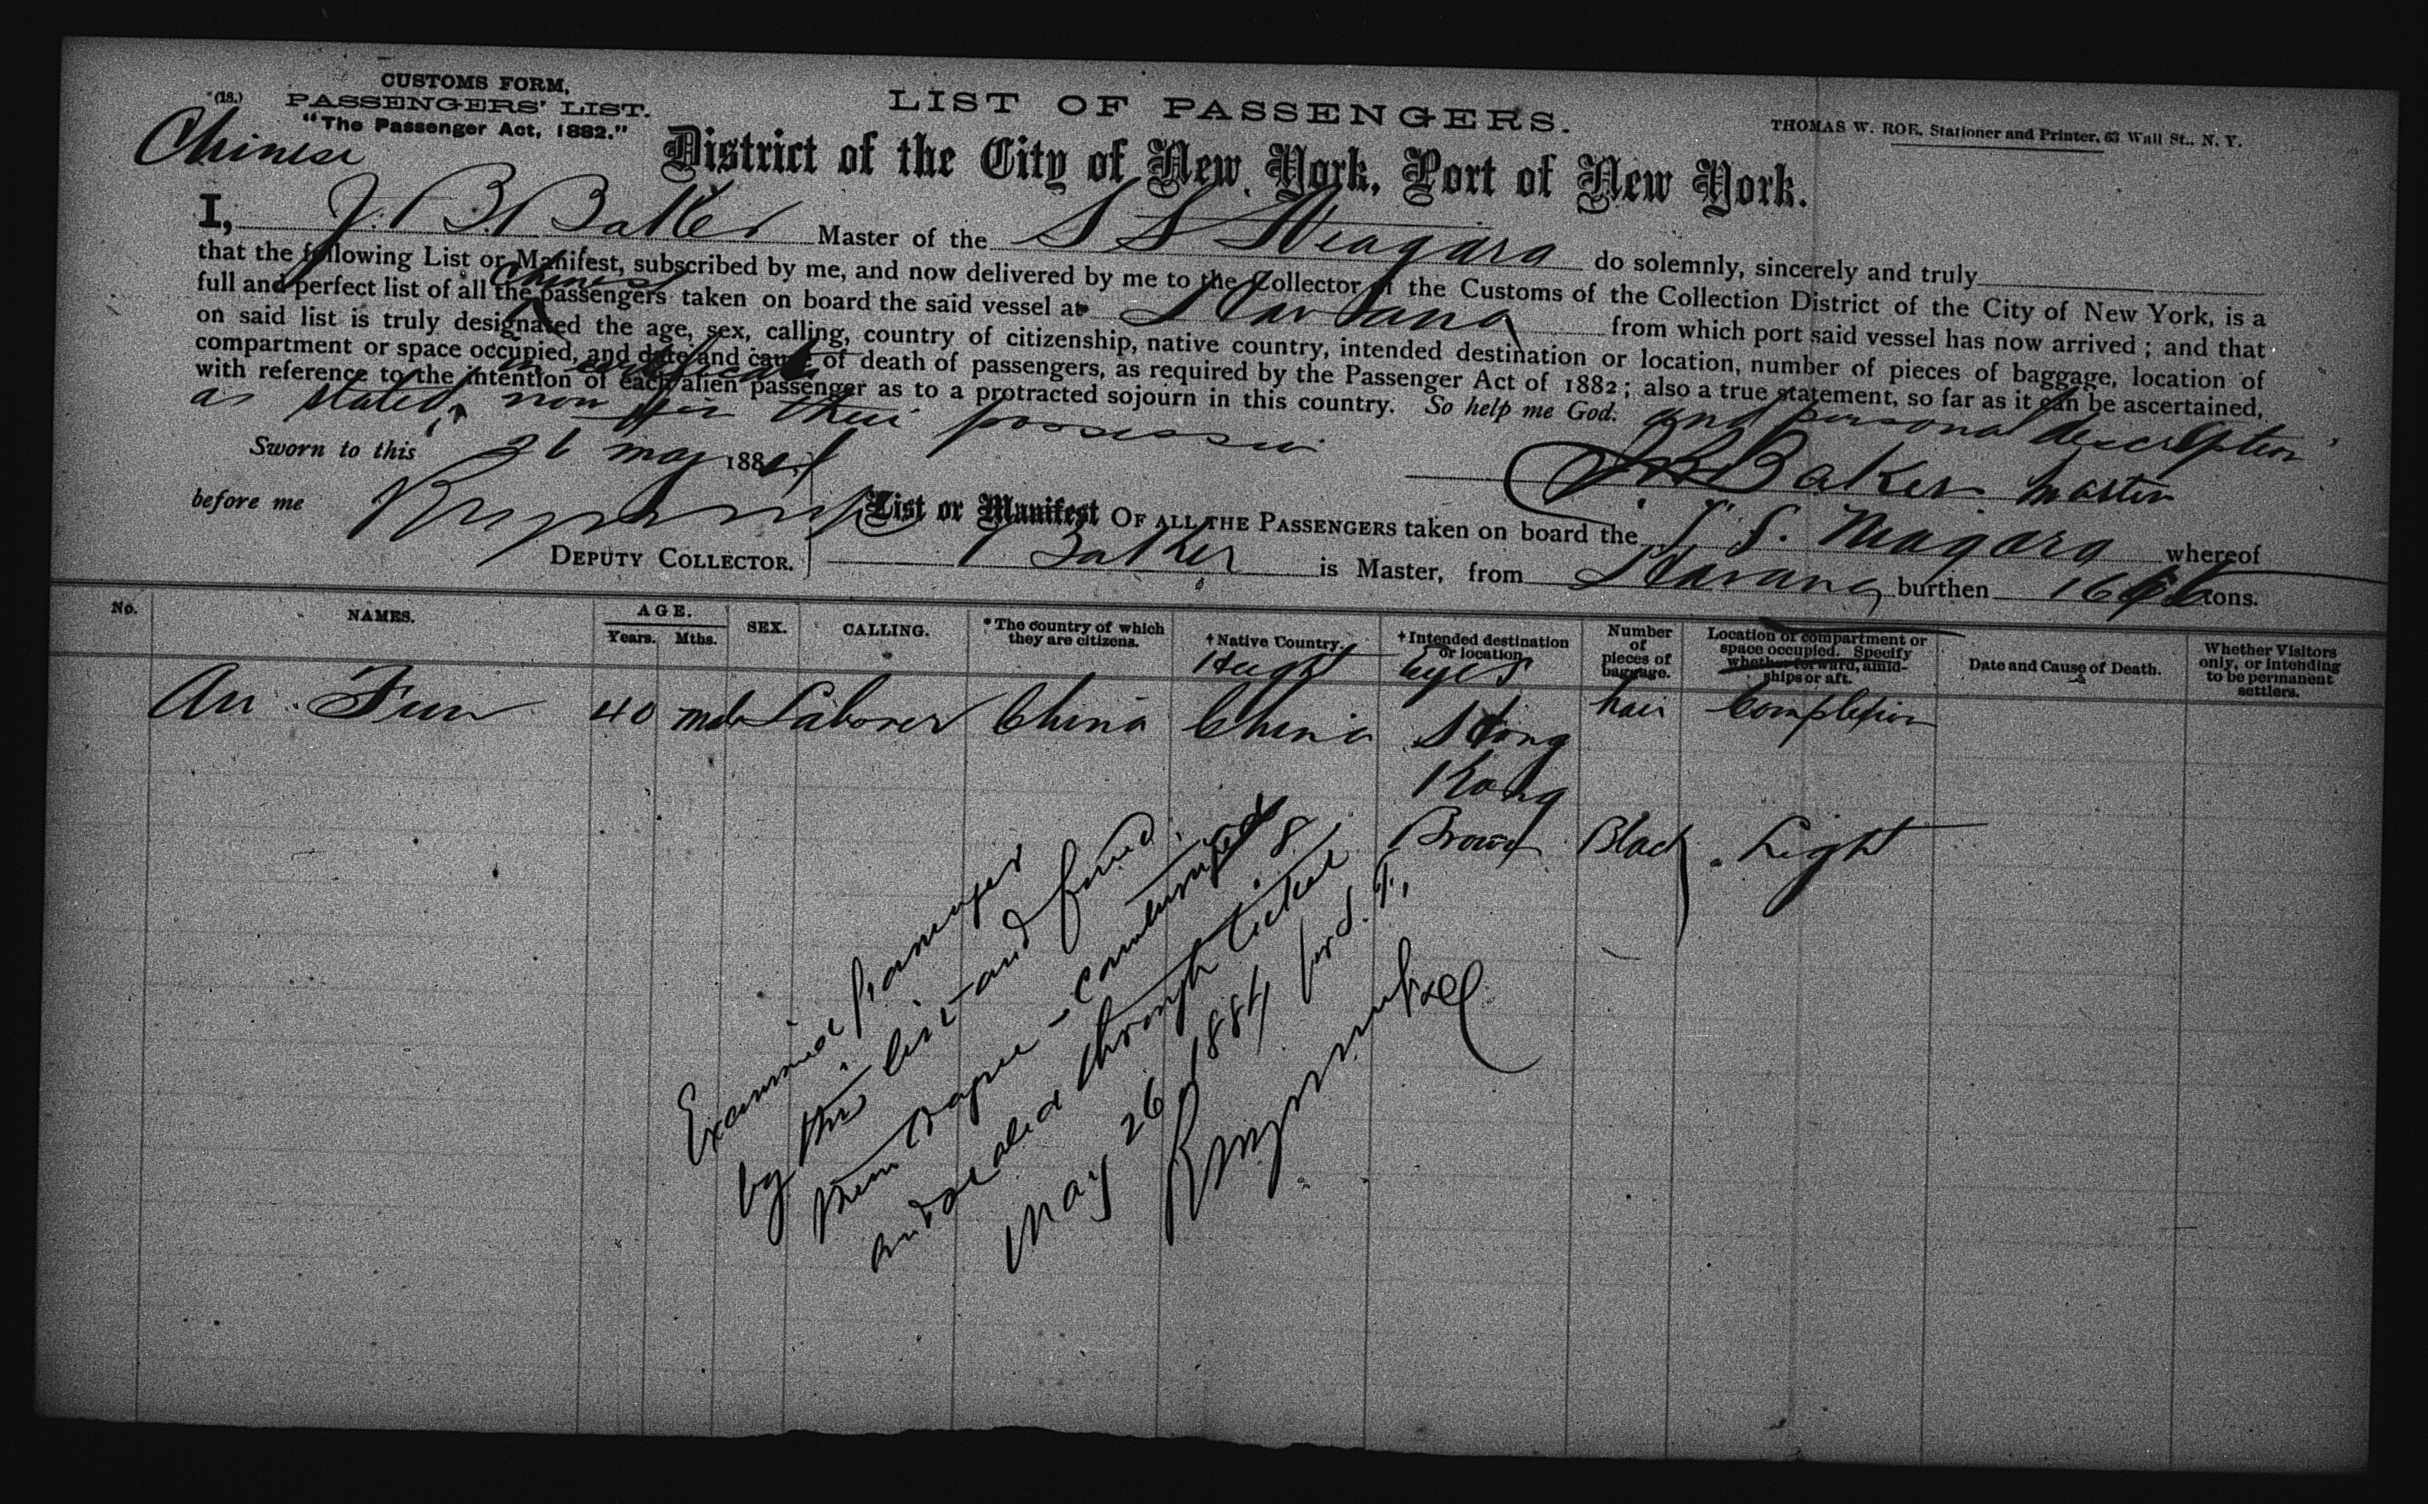 CUSTOMS FORM,
(18.) PASSENGERS' LIST.
"The Passenger Act, 1882."
Chinese
LIST OF PASSENGERS.
THOMAS W. ROE, Stationer and Printer, 63 Wall St., N. Y.
District of the City of New York, Port of New York.
I, J. B. Baker Master of the S S Niagara do solemnly, sincerely and truly
that the following List or Manifest, subscribed by me, and now delivered by me to the Collector of the Customs of the Collection District of the City of New York, is a
full and perfect list of all the Chinese passengers taken on board the said vessel at Havana from which port said vessel has now arrived; and that
on said list is truly designated the age, sex, calling, country of citizenship, native country, intended destination or location, number of pieces of baggage, location of
compartment or space occupied, and date and cause of death of passengers, as required by the Passenger Act of 1882; also a true statement, so far as it can be ascertained,
with reference to the intention of each alien passenger as to a protracted sojourn in this country. So help me God. and personal description
as stated in certificate now in their possession
Sworn to this 26 May 1884
J B Baker Master
before me
DEPUTY COLLECTOR.
List or Manifest OF ALL THE PASSENGERS taken on board the S. S. Niagara whereof
Baker is Master, from Havana burthen tons.
No.
NAMES.
AGE.
Years. Mths.
SEX.
CALLING.
*The country of which they are citizens.
†Native Country.
Height
†Intended destination or location.
Eyes
Number of pieces of baggage.
hair
Location of compartment or space occupied. Specify whether forward, amidships or aft.
Complexion
Date and Cause of Death.
Whether Visitors only, or intending to be permanent settlers.
Au Fun 40 male Laborer China China Hong
Kong
Brown Black Light
Examined passenger
by this list and found
them to agree - countersigned
and sealed through ticket
May 26, 1884 for S. F.,